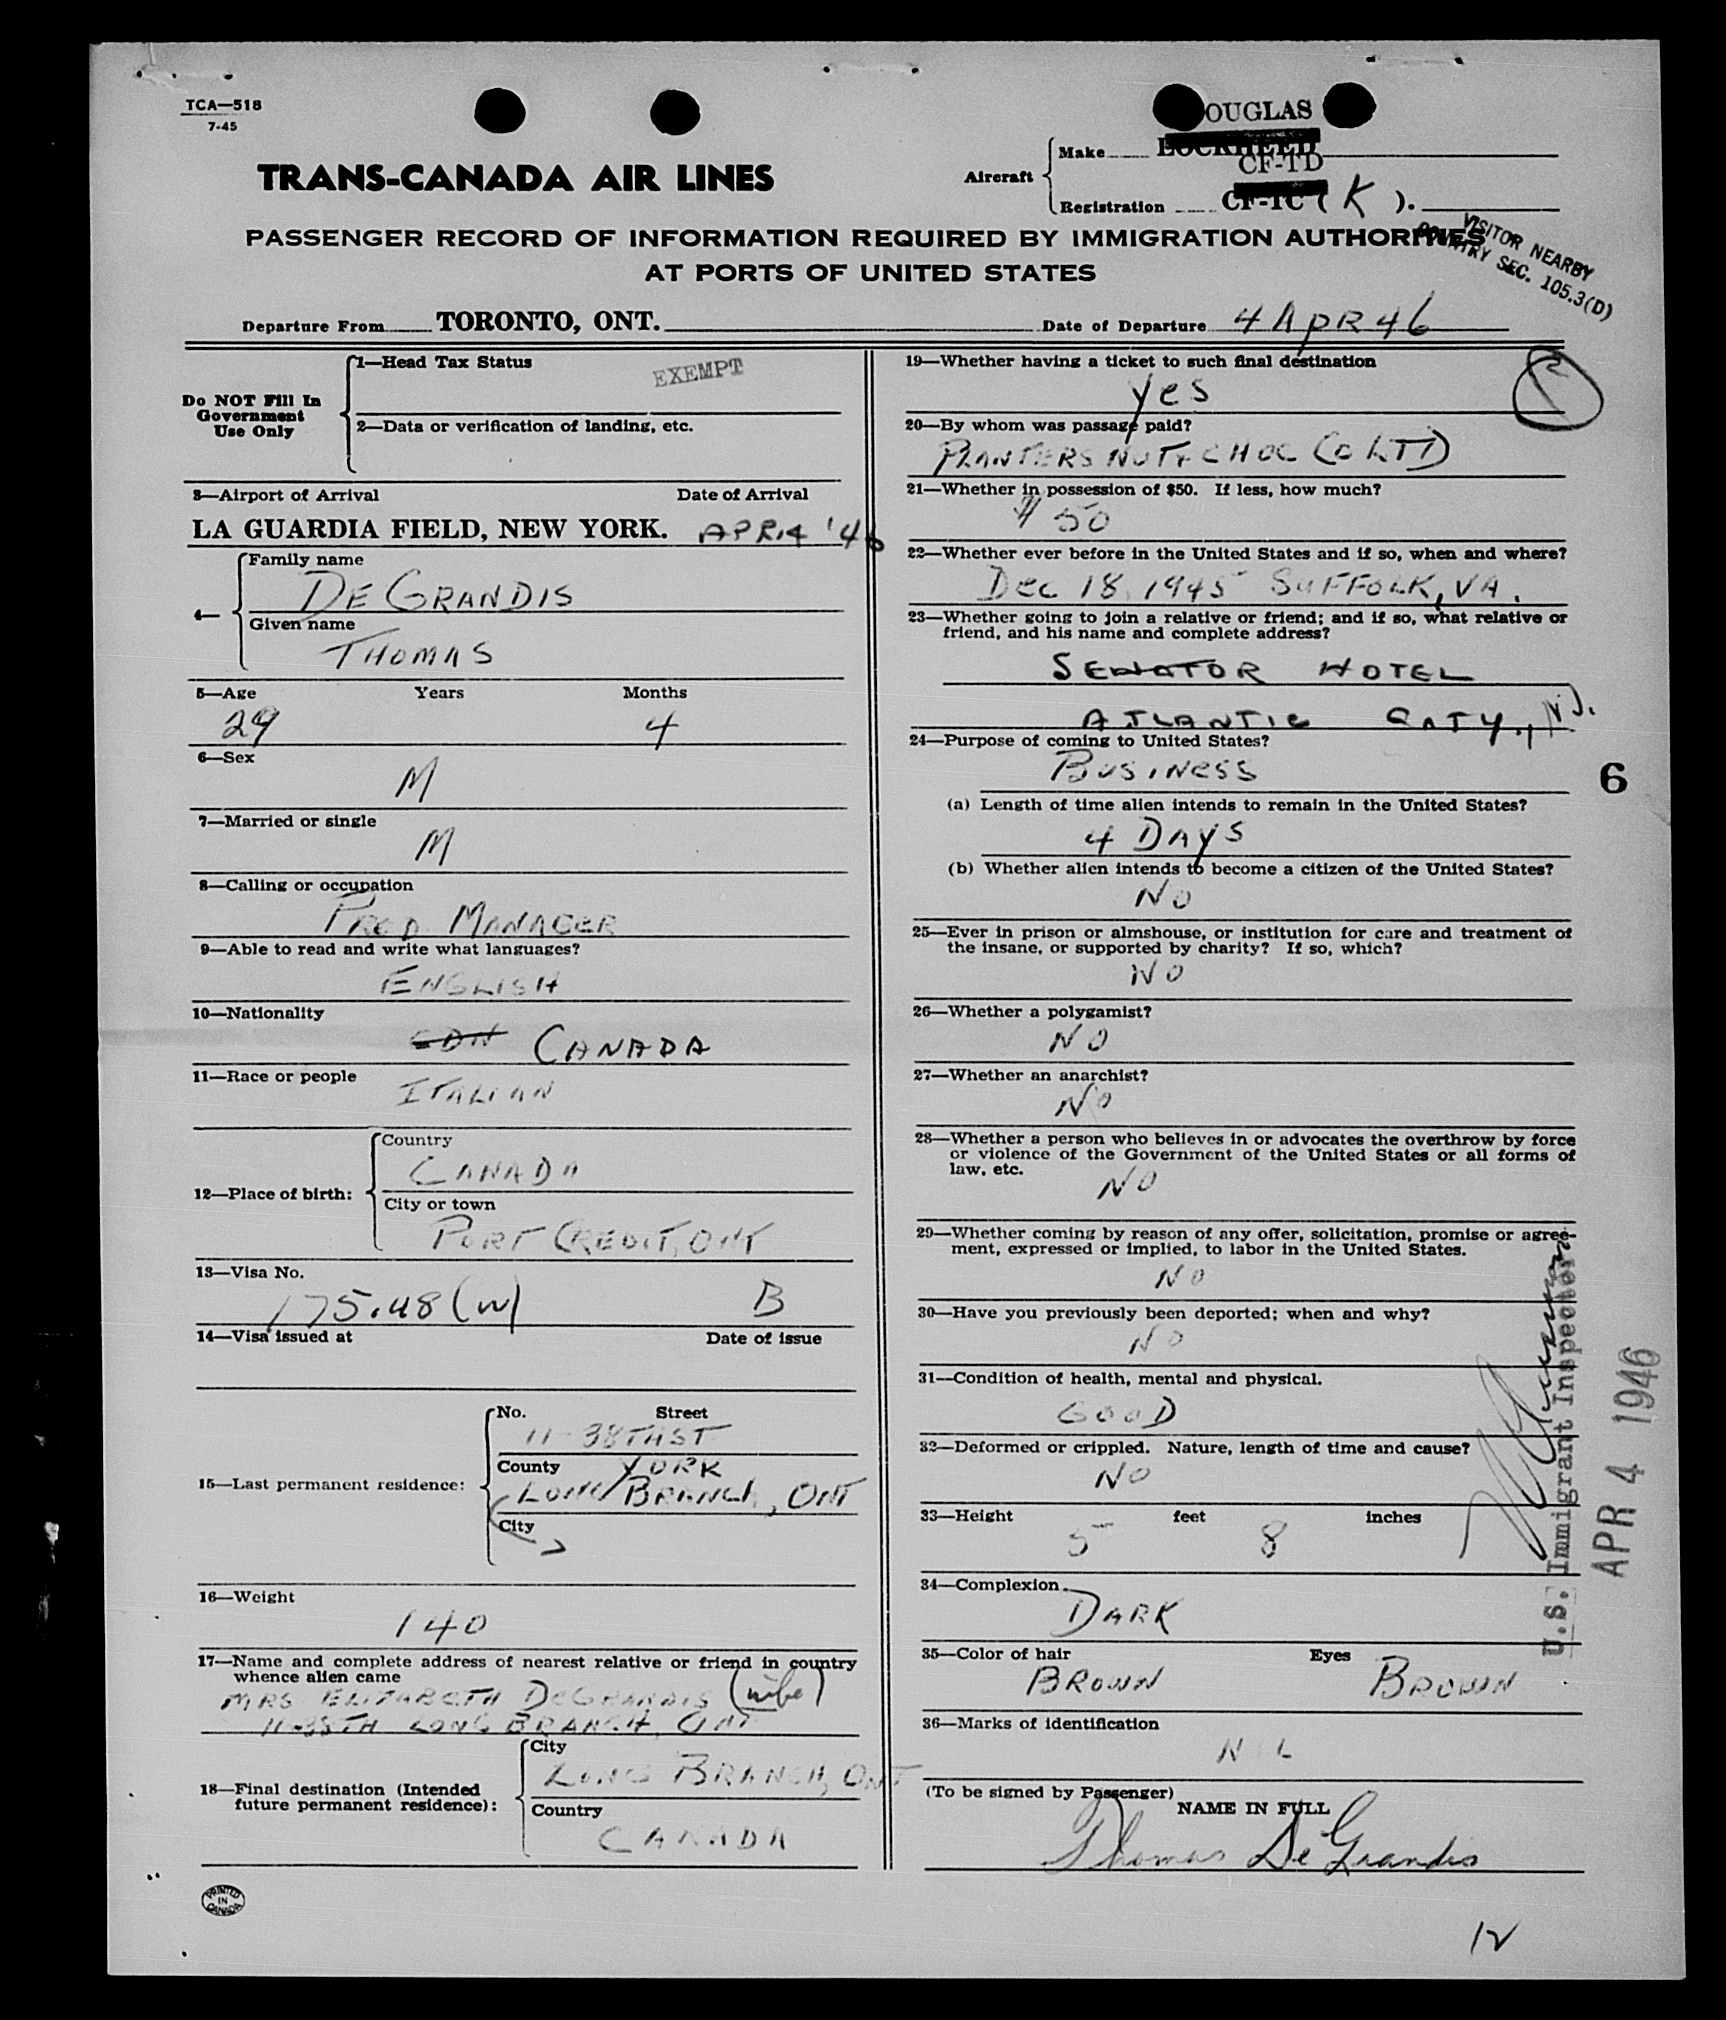 TCA—518
7-45
DOUGLAS
Aircraft
Make LOCKHEED
CF-TD
Registration CF-TC ( K ).
TRANS-CANADA AIR LINES
PASSENGER RECORD OF INFORMATION REQUIRED BY IMMIGRATION AUTHORITIES
AT PORTS OF UNITED STATES
VISITOR NEARBY
COUNTRY SEC. 105.3(D)
Departure From TORONTO, ONT. Date of Departure 4 APR 46
Do NOT Fill In
Government
Use Only
1—Head Tax Status EXEMPT
2—Data or verification of landing, etc.
3—Airport of Arrival Date of Arrival
LA GUARDIA FIELD, NEW YORK. APR.4 '46
4—
Family name
DE GRANDIS
Given name
THOMAS
5—Age Years Months
29 4
6—Sex
M
7—Married or single
M
8—Calling or occupation
PROD. MANAGER
9—Able to read and write what languages?
ENGLISH
10—Nationality
CDN CANADA
11—Race or people
ITALIAN
12—Place of birth:
Country
CANADA
City or town
PORT CREDIT, ONT
13—Visa No.
175.48 (w) B
14—Visa issued at Date of issue
15—Last permanent residence:
No. Street
11-38TH ST
County YORK
LONG BRANCH, ONT
City
16—Weight
140
17—Name and complete address of nearest relative or friend in country
whence alien came
MRS ELIZABETH DEGRANDIS (wife)
11-38TH LONG BRANCH, ONT
18—Final destination (Intended
future permanent residence):
City
LONG BRANCH, ONT
Country
CANADA
PRINTED
IN
CANADA
19—Whether having a ticket to such final destination
Yes
20—By whom was passage paid?
PLANTERS NUT & CHOC CO LTD
21—Whether in possession of $50. If less, how much?
$ 50
22—Whether ever before in the United States and if so, when and where?
DEC 18, 1945 SUFFOLK, VA.
23—Whether going to join a relative or friend; and if so, what relative or
friend, and his name and complete address?
SENATOR HOTEL
ATLANTIC CITY, NJ.
24—Purpose of coming to United States?
BUSINESS
6
(a) Length of time alien intends to remain in the United States?
4 DAYS
(b) Whether alien intends to become a citizen of the United States?
NO
25—Ever in prison or almshouse, or institution for care and treatment of
the insane, or supported by charity? If so, which?
NO
26—Whether a polygamist?
NO
27—Whether an anarchist?
NO
28—Whether a person who believes in or advocates the overthrow by force
or violence of the Government of the United States or all forms of
law, etc.
NO
29—Whether coming by reason of any offer, solicitation, promise or agree-
ment, expressed or implied, to labor in the United States.
NO
30—Have you previously been deported; when and why?
NO
31—Condition of health, mental and physical.
GOOD
32—Deformed or crippled. Nature, length of time and cause?
NO
33—Height feet inches
5 8
34—Complexion
DARK
35—Color of hair Eyes
BROWN BROWN
36—Marks of identification
NIL
(To be signed by Passenger)
NAME IN FULL
Thomas De Grandis
U.S. Immigrant Inspector
APR 4 1946
12